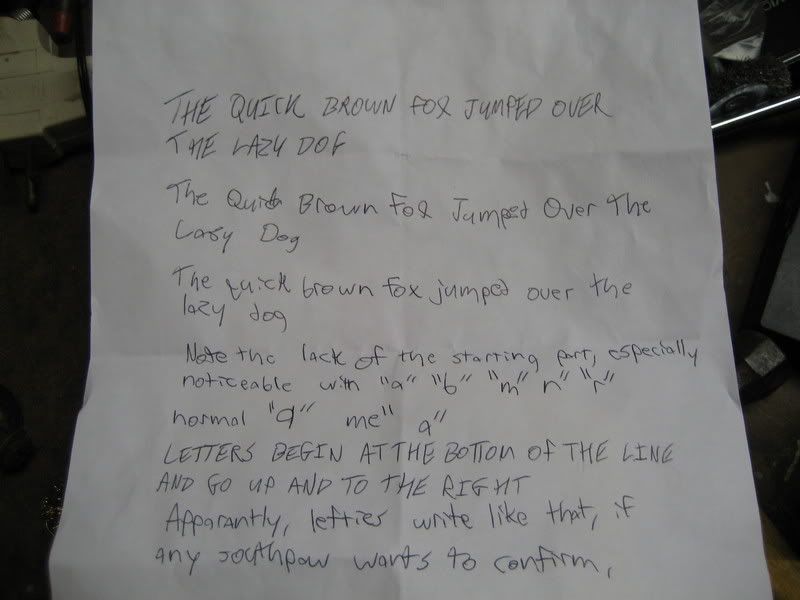 THE QUICK BROWN FOX JUMPED OVER
THE LAZY DOG
The Quick Brown Fox Jumped Over The
Lazy Dog
The quick brown fox jumped over the
lazy dog
Note the lack of the starting part, especially
noticeable with "a" "b" "m" n" "r"
normal "a" me" a"
LETTERS BEGIN AT THE BOTTOM OF THE LINE
AND GO UP AND TO THE RIGHT
Apparantly, lefties write like that, if
any southpaw wants to confirm,